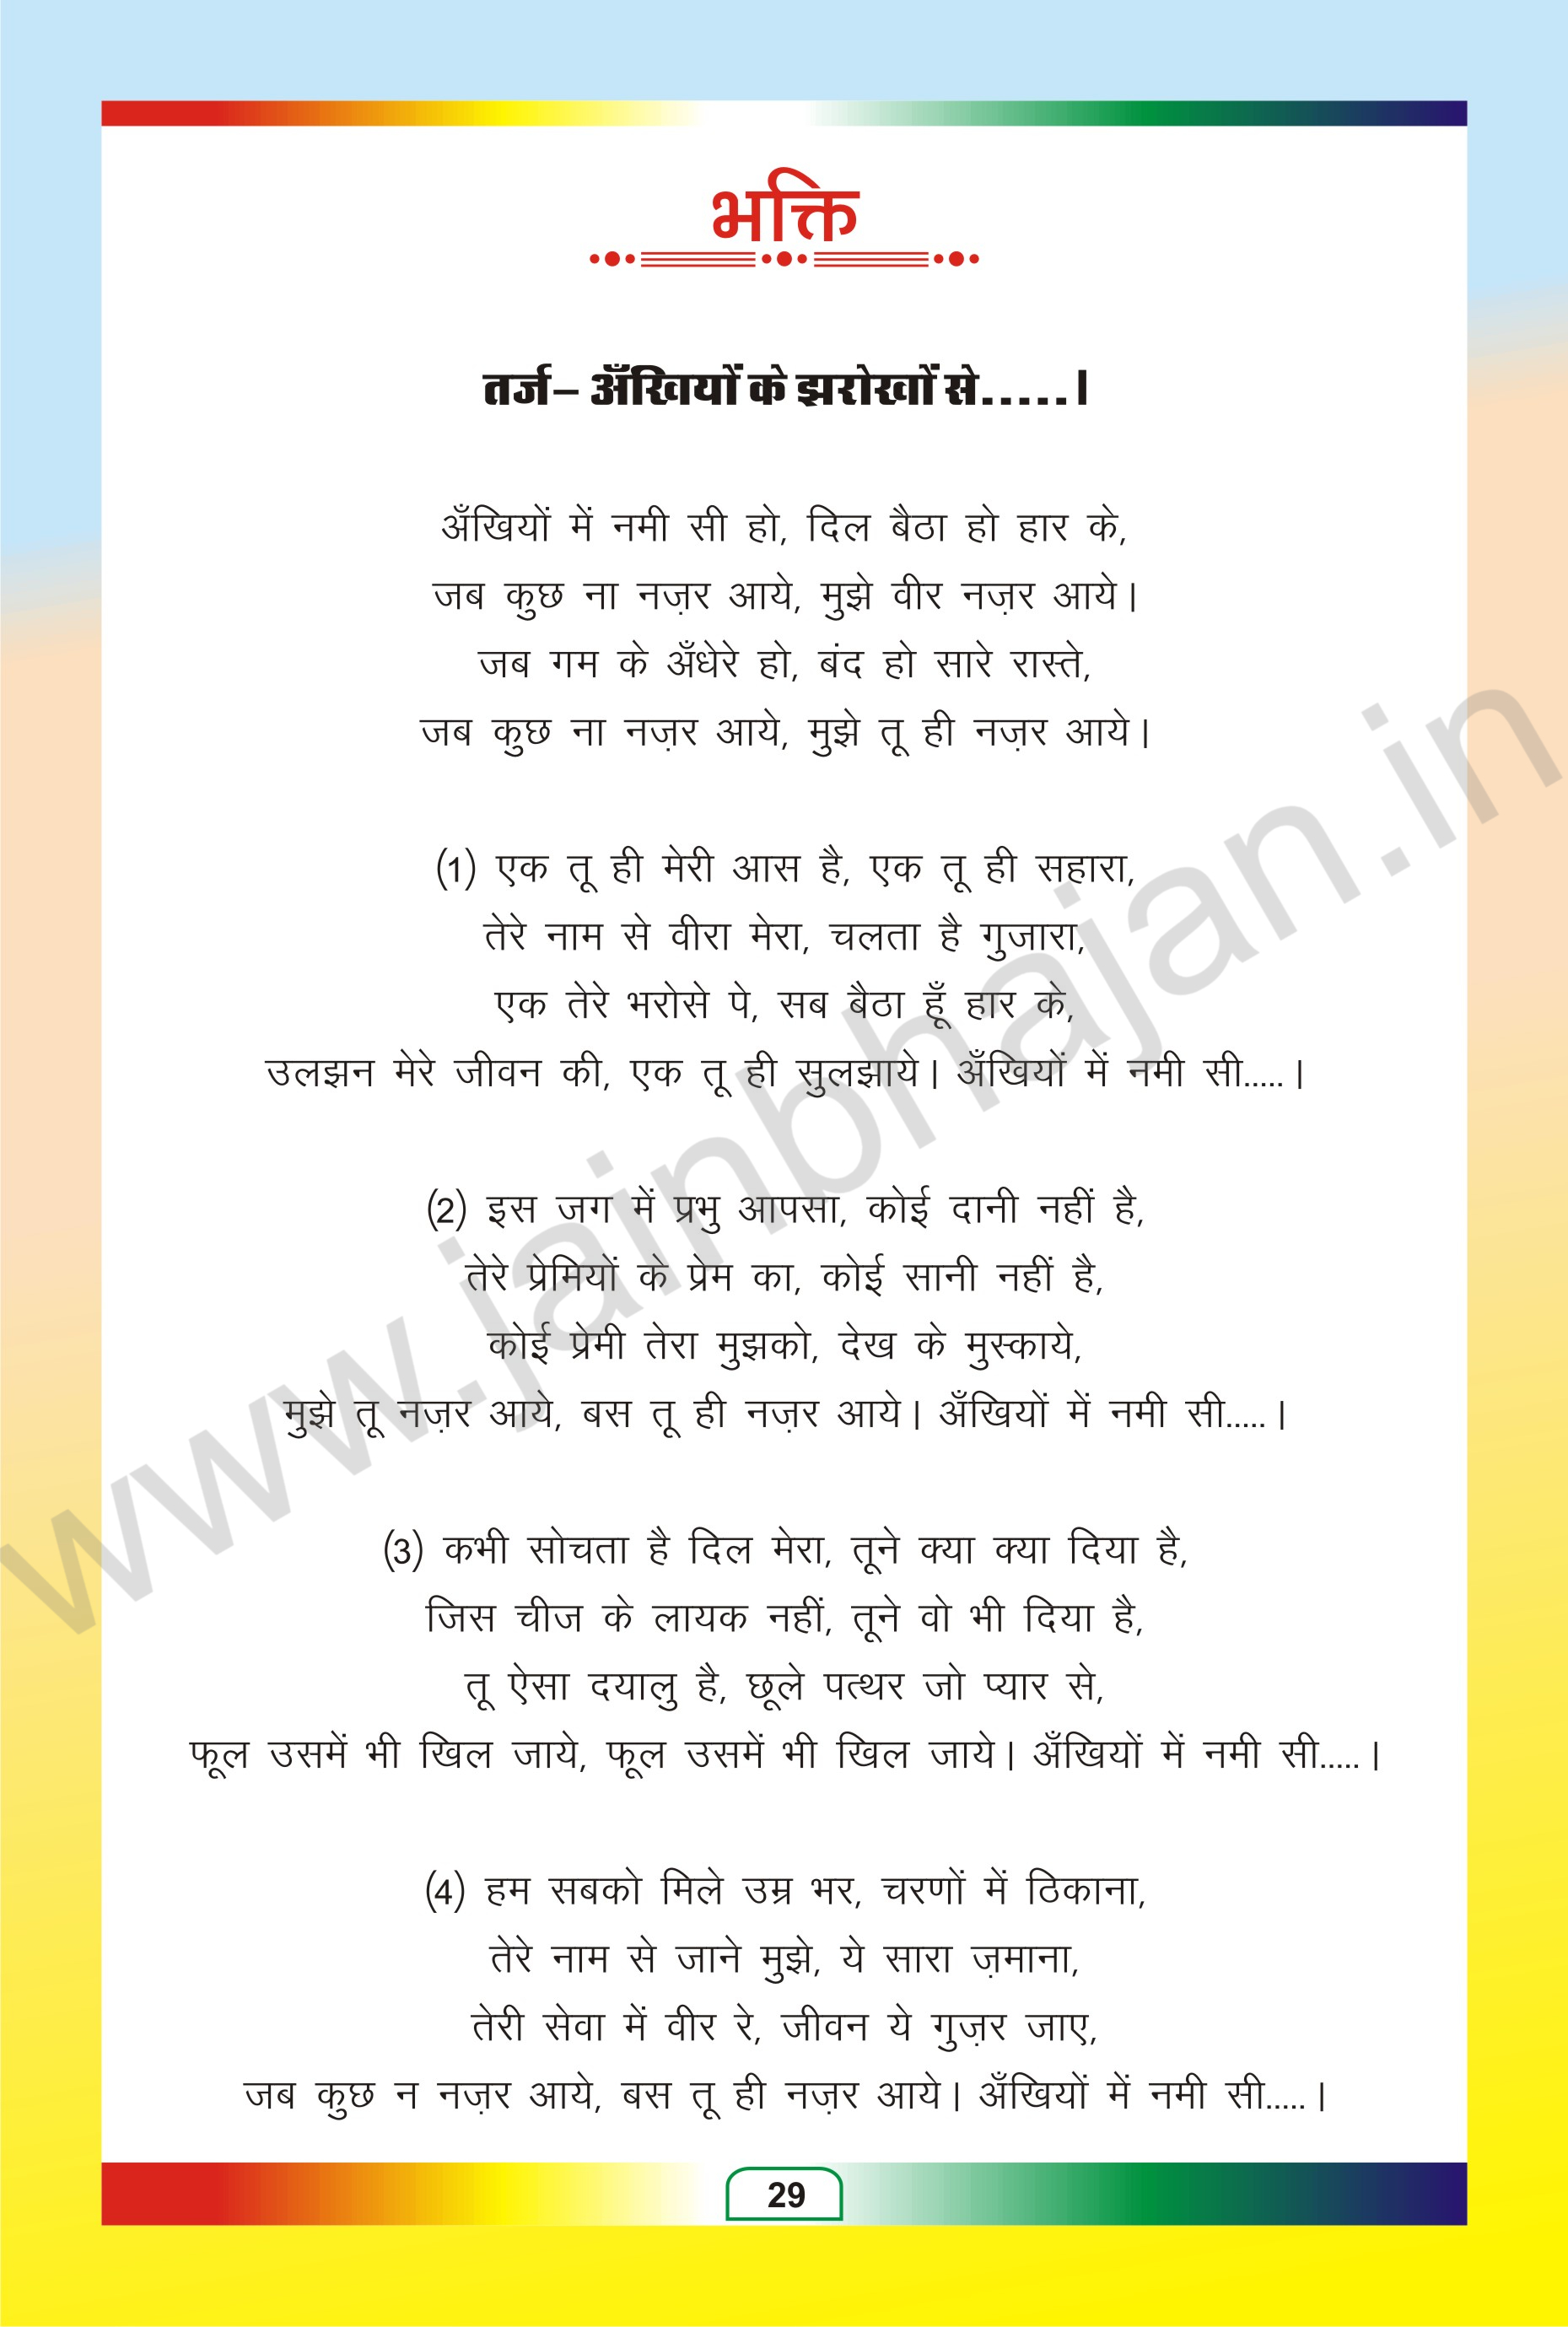 भक्ति
तर्ज– अँखियों के झरोखों से.....।
अँखियों में नमी सी हो, दिल बैठा हो हार के,
जब कुछ ना नज़र आये, मुझे वीर नज़र आये।
जब गम के अँधेरे हो, बंद हो सारे रास्ते,
जब कुछ ना नज़र आये, मुझे तू ही नज़र आये।
(1) एक तू ही मेरी आस है, एक तू ही सहारा,
तेरे नाम से वीरा मेरा, चलता है गुजारा,
एक तेरे भरोसे पे, सब बैठा हूँ हार के,
उलझन मेरे जीवन की, एक तू ही सुलझाये। अँखियों में नमी सी.....।
(2) इस जग में प्रभु आपसा, कोई दानी नहीं है,
तेरे प्रेमियों के प्रेम का, कोई सानी नहीं है,
कोई प्रेमी तेरा मुझको, देख के मुस्काये,
मुझे तू नज़र आये, बस तू ही नज़र आये। अँखियों में नमी सी.....।
(3) कभी सोचता है दिल मेरा, तूने क्या क्या दिया है,
जिस चीज के लायक नहीं, तूने वो भी दिया है,
तू ऐसा दयालु है, छूले पत्थर जो प्यार से,
फूल उसमें भी खिल जाये, फूल उसमें भी खिल जाये। अँखियों में नमी सी.....।
(4) हम सबको मिले उम्र भर, चरणों में ठिकाना,
तेरे नाम से जाने मुझे, ये सारा ज़माना,
तेरी सेवा में वीर रे, जीवन ये गुज़र जाए,
जब कुछ न नज़र आये, बस तू ही नज़र आये। अँखियों में नमी सी.....।
29
www.jainbhajan.in